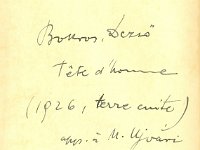 Bokros, Dezső
Tête d'homme
(1926, terre cuite)
app. à M. Ujvári